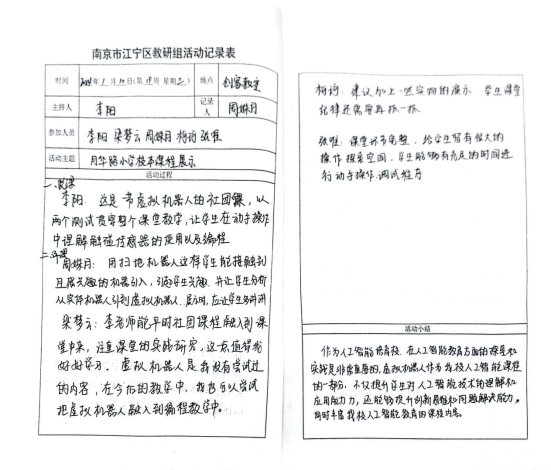 南京市江宁区教研组活动记录表
时间 年1月 日(第 周 星期三) 地点 创客教室
主持人 李阳 记录人 周姝月
参加人员 李阳 梁梦云 周姝月 杨诗 张维
活动主题 月华路小学校本课程展示
活动过程
李阳：这是一节虚拟机器人的社团课，以
两个测试贯穿整个课堂教学，让学生在动手操作
中理解触碰传感器的使用以及编程
二、评课
周姝月：用扫地机器人这样学生能接触到
且感兴趣的机器引入，引起学生兴趣，并让学生分析
从实体机器人引到虚拟机器人，
梁梦云：李老师能平时社团课程融入到课
堂中来，注重课堂的实践研究，这点值得我
好好学习。虚拟机器人是我没有尝试过
的内容，在今后的教学中，我也可以尝试
把虚拟机器人融入到编程教学中。
杨诗：建议加上一些实物的展示 学生课堂
纪律还需要再抓一抓
张维：课堂环节完整，给学生留有很大的
操作探索空间，学生能够有充足的时间进
行动手操作、调试程序
活动小结
作为人工智能 在人工智能教育方面的课程和
实践是非常重要的，虚拟机器人作为我校人工智能课程
的一部分，不仅提升学生对人工智能技术的理解和
应用能力，还能够提升创新思维和问题解决能力。
同时丰富我校人工智能教育的课程内容。